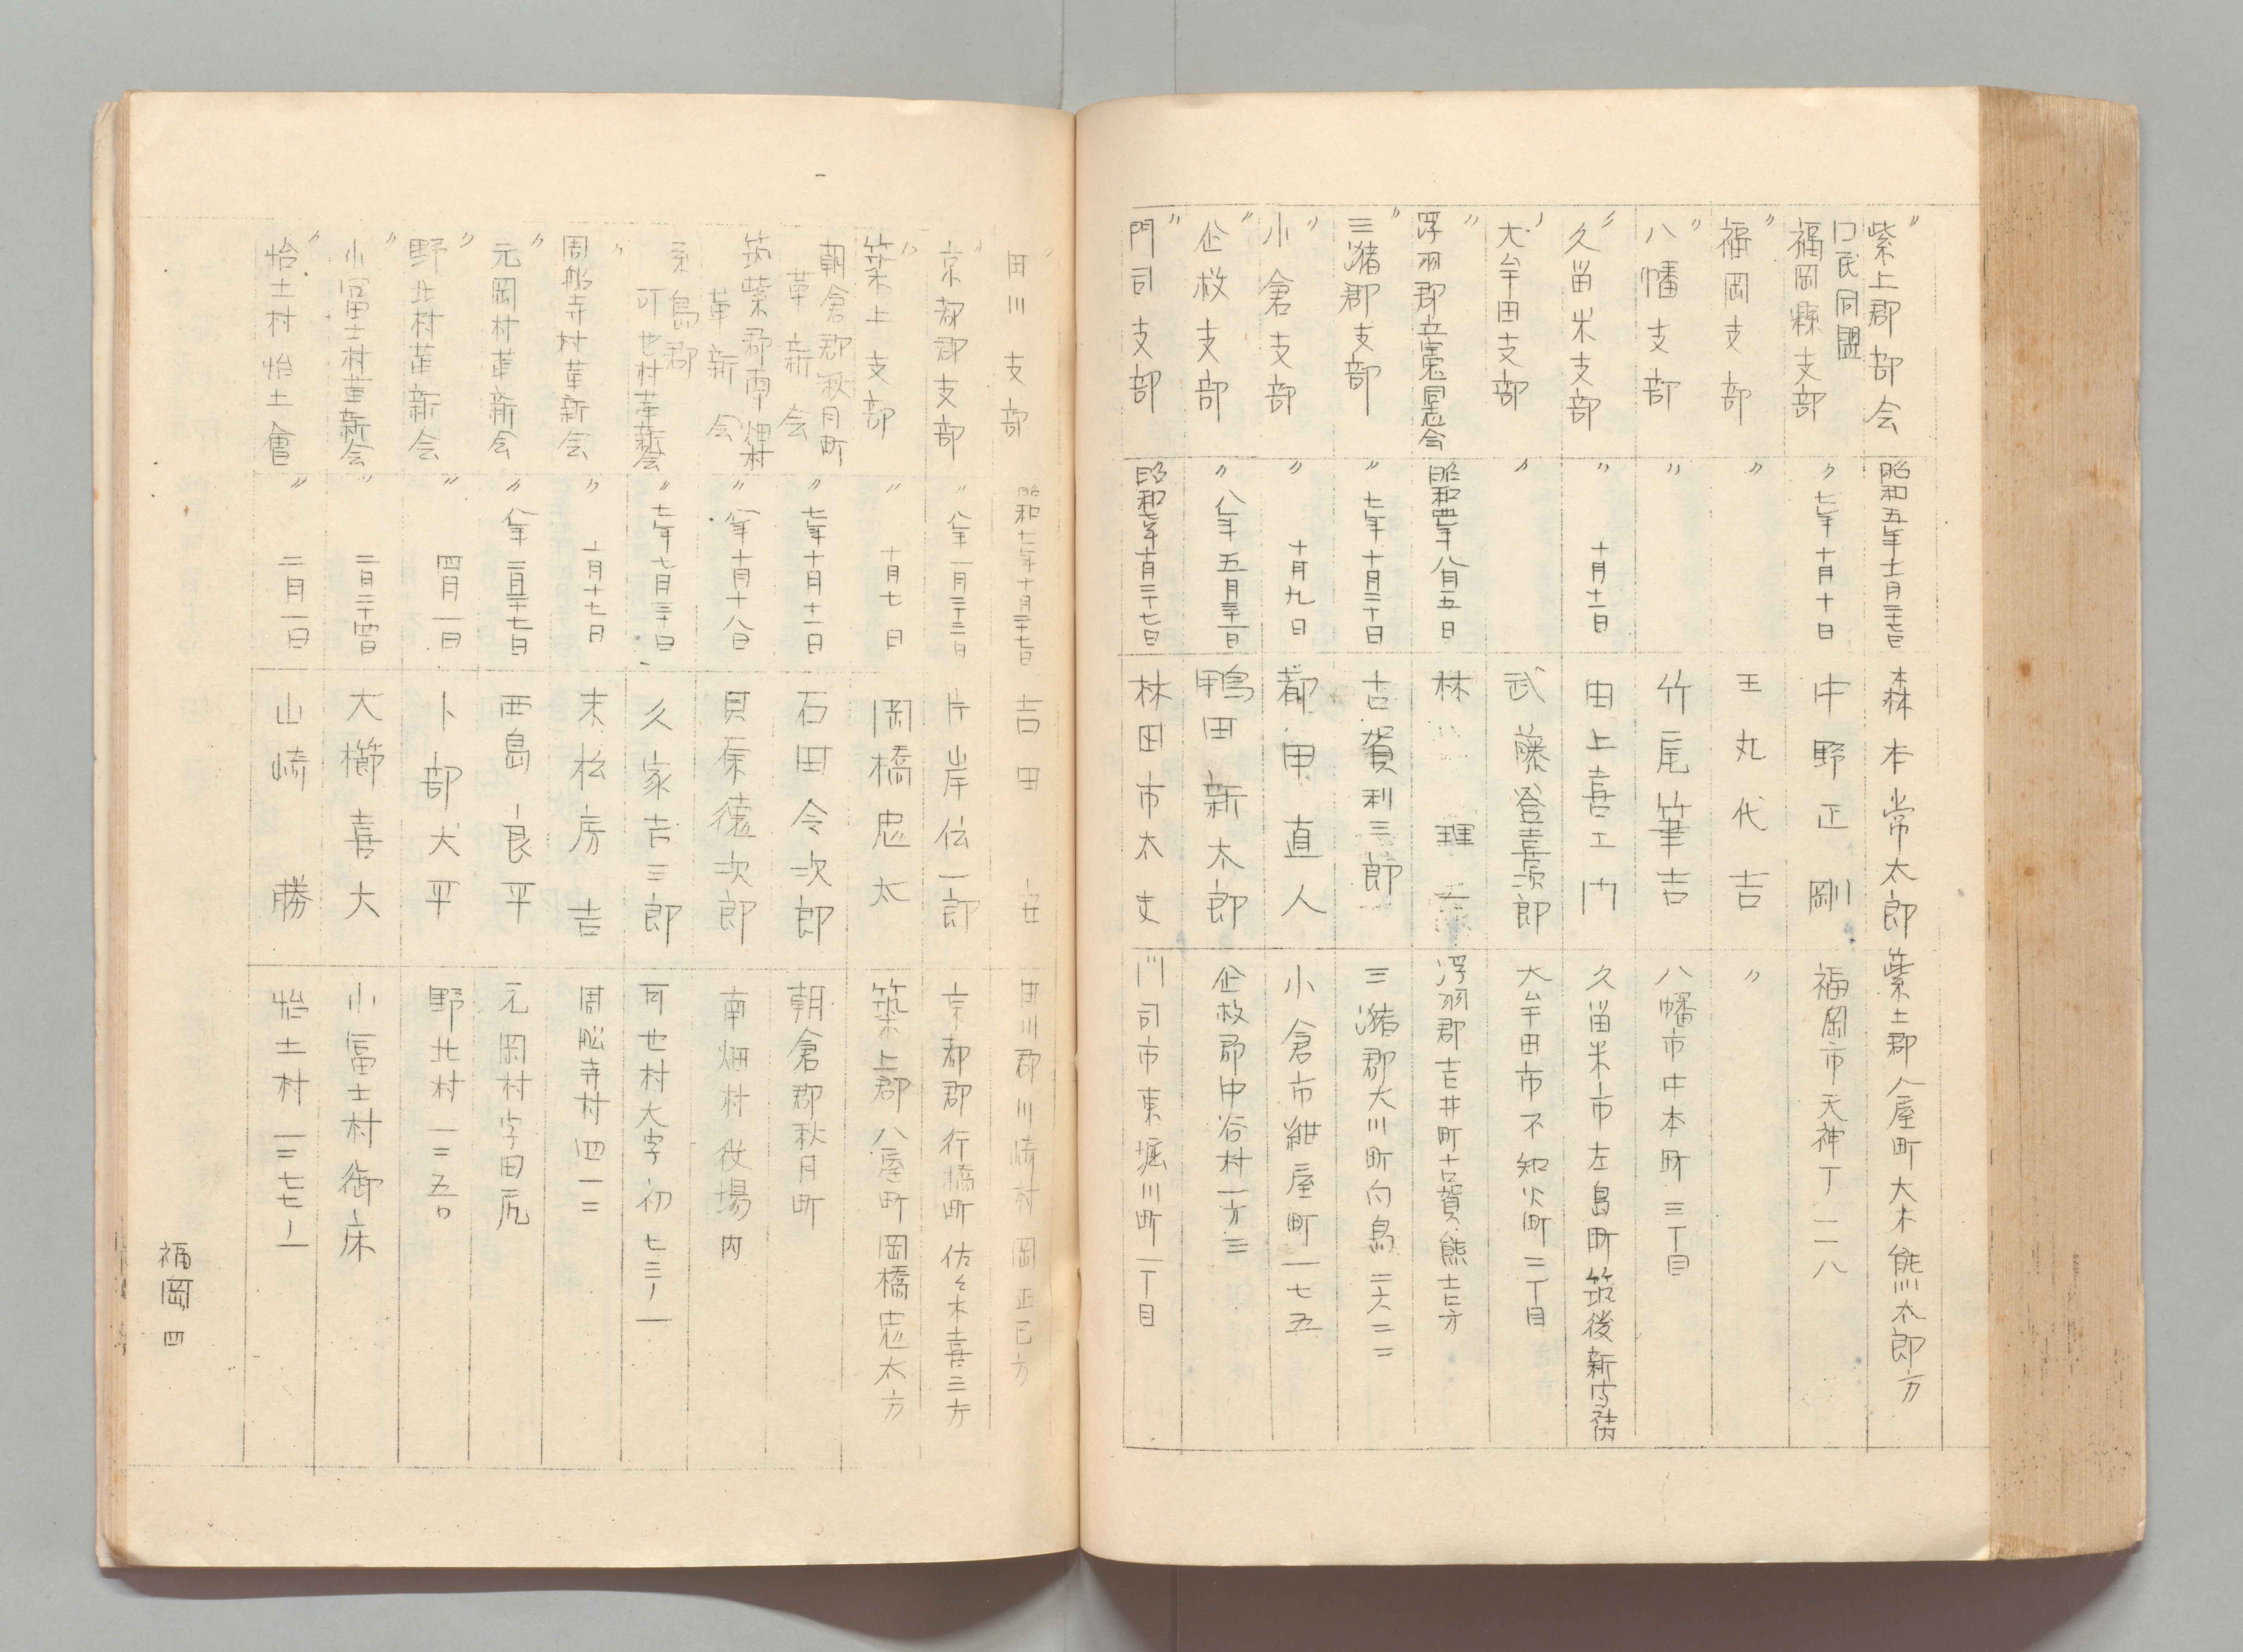 〃 紫上郡部会 昭和五年十二月二十七日 森本常太郎 築上郡八屋町大木熊太郎方
口民同盟
福岡縣支部 〃七年十月十日 中野正剛 福岡市天神丁一一八
〃 福岡支部 〃 王丸代吉 〃
〃 八幡支部 〃 竹尾筆吉 八幡市中本町三丁目
〃 久留米支部 〃 十月十一日 田上喜工門 久留米市左島町筑後新
〃 大牟田支部 〃 武藤登喜次郎 大牟田市不知火町二丁目
〃 浮羽郡立憲同志会 昭和四年八月五日 林 理 浮羽郡吉井町古賀熊吉方
〃 三潴郡支部 〃七年十月二十日 古賀利三郎 三潴郡大川町向島二六二二
〃 小倉支部 〃 十月九日 都甲直人 小倉市紺屋町一七五
〃 企救支部 〃八年五月三十一日 鴨田新太郎 企救郡中谷村一方三
〃 門司支部 昭和七年十月二十七日 林田市太丈 門司市東堀川町一丁目
〃 田川支部 昭和七年十月二十七日 吉田 田川郡川崎村岡正巳方
〃 京都郡支部 〃八年一月二十三日 片岸伝一郎 京都郡行橋町佐々木喜三方
〃 築上支部 〃 十月七日 岡橋忠太 築上郡八屋町岡橋忠太方
朝倉郡秋月町
革新会 〃七年十月十一日 石田令次郎 朝倉郡秋月町
筑紫郡南畑村
革新会 〃八年十月十八日 貝原徳次郎 南畑村役場内
糸島郡
可也村革新会 〃七年七月三十日 久家吉三郎 可也村大字初七三ノ一
〃 周船寺村革新会 〃 十月十七日 末松房吉 周船寺村四一二
〃 元岡村革新会 〃八年一月二十七日 西島良平 元岡村字田尻
〃 野北村革新会 〃 四月一日 卜部犬平 野北村一二五
〃 小冨士村革新会 〃 二月二十四日 大櫛喜大 小冨士村御床
〃 怡土村怡土會 〃 二月一日 山崎勝 怡土村一二七七ノ一
福岡 四